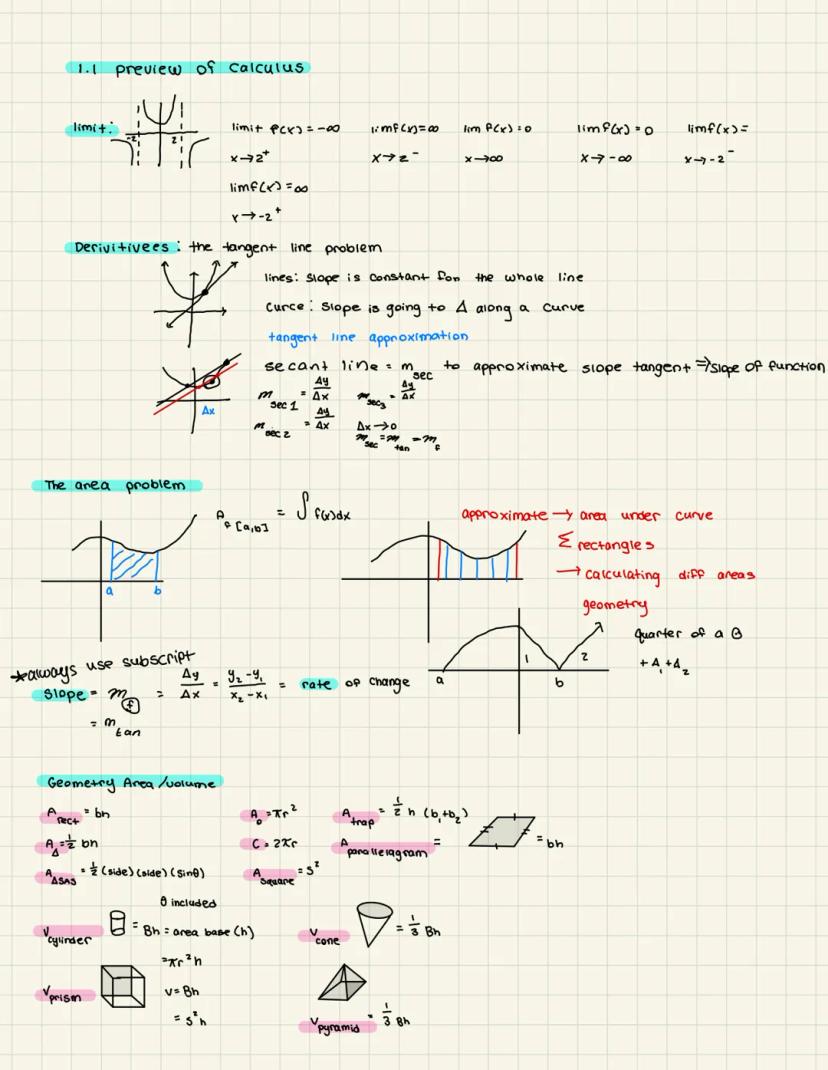 1.1 preview of calculus
limit:
-2 2
limit f(x) = -∞ limf(x)=∞ lim f(x)=0 limf(x)=0 limf(x)=
x→2⁺ x→2⁻ x→∞ x→-∞ x→-2⁻
limf(x)=∞
x→-2⁺
Derivitivees: the tangent line problem
lines: slope is constant for the whole line
curce: slope is going to Δ along a curve
tangent line approximation
secant line = m sec to approximate slope tangent ⇒ slope of function
m sec 1 = Δy/Δx m sec3 = Δy/Δx
Δx
m sec 2 = Δy/Δx Δx→0
m sec = m tan = m f
The area problem
A f [a,b] = ∫ f(x)dx
approximate → area under curve
Σ rectangles
→ calculating diff areas
geometry
a b
quarter of a
+ A₁+A₂
1 2
a b
*always use subscript
Slope = m f = Δy/Δx = y₂-y₁/x₂-x₁ = rate of change
= m tan
Geometry Area/volume
A rect = bh A o = πr² A trap = ½ h (b₁+b₂)
A Δ = ½ bh C = 2πr A parallelagram = = bh
A ΔSAS = ½ (side)(side)(sinθ) A square = s²
θ included
V cylinder = Bh = area base (h) V cone = ⅓ Bh
=πr²h
V prism V=Bh
= s²h V pyramid = ⅓ Bh